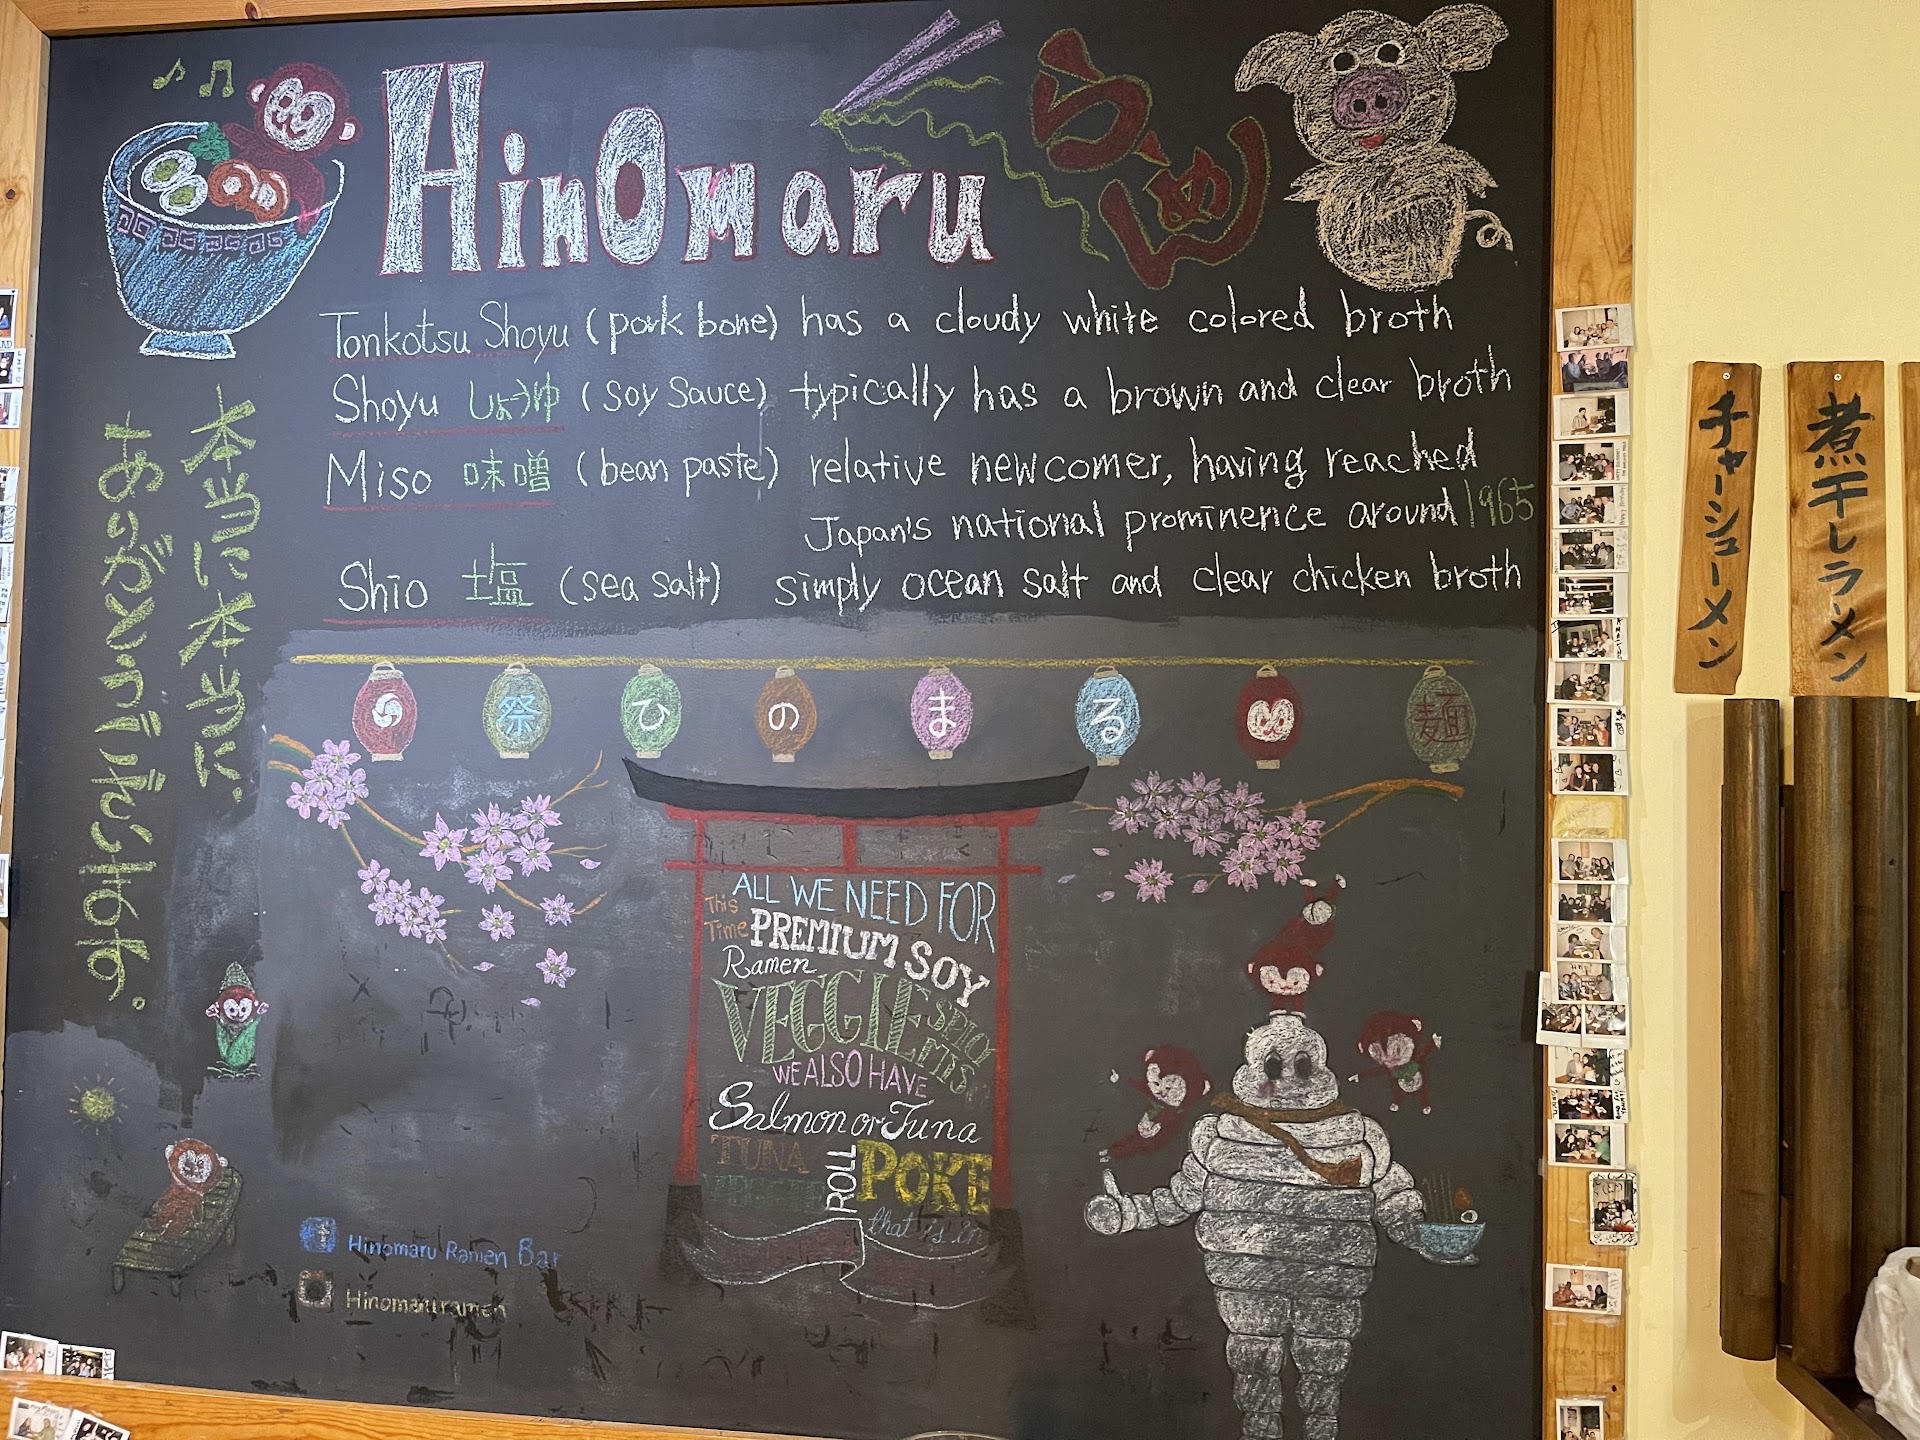 HinOmaru
らーめん
Tonkotsu Shoyu (pork bone) has a cloudy white colored broth
Shoyu しょうゆ (soy sauce) typically has a brown and clear broth
Miso 味噌 (bean paste) relative newcomer, having reached
Japan's national prominence around 1965
Shio 塩 (sea salt) simply ocean salt and clear chicken broth
本当に本当に、
ありがとうございます。
祭 ひ の ま る 麺
ALL WE NEED FOR
This Time PREMIUM SOY
Ramen
VEGGIE
WE ALSO HAVE
Salmon or Tuna
TUNA
ROLL POKE
that is in
Hinomaru Ramen Bar
Hinomaruramen
チャーシューメン
煮干しラーメン